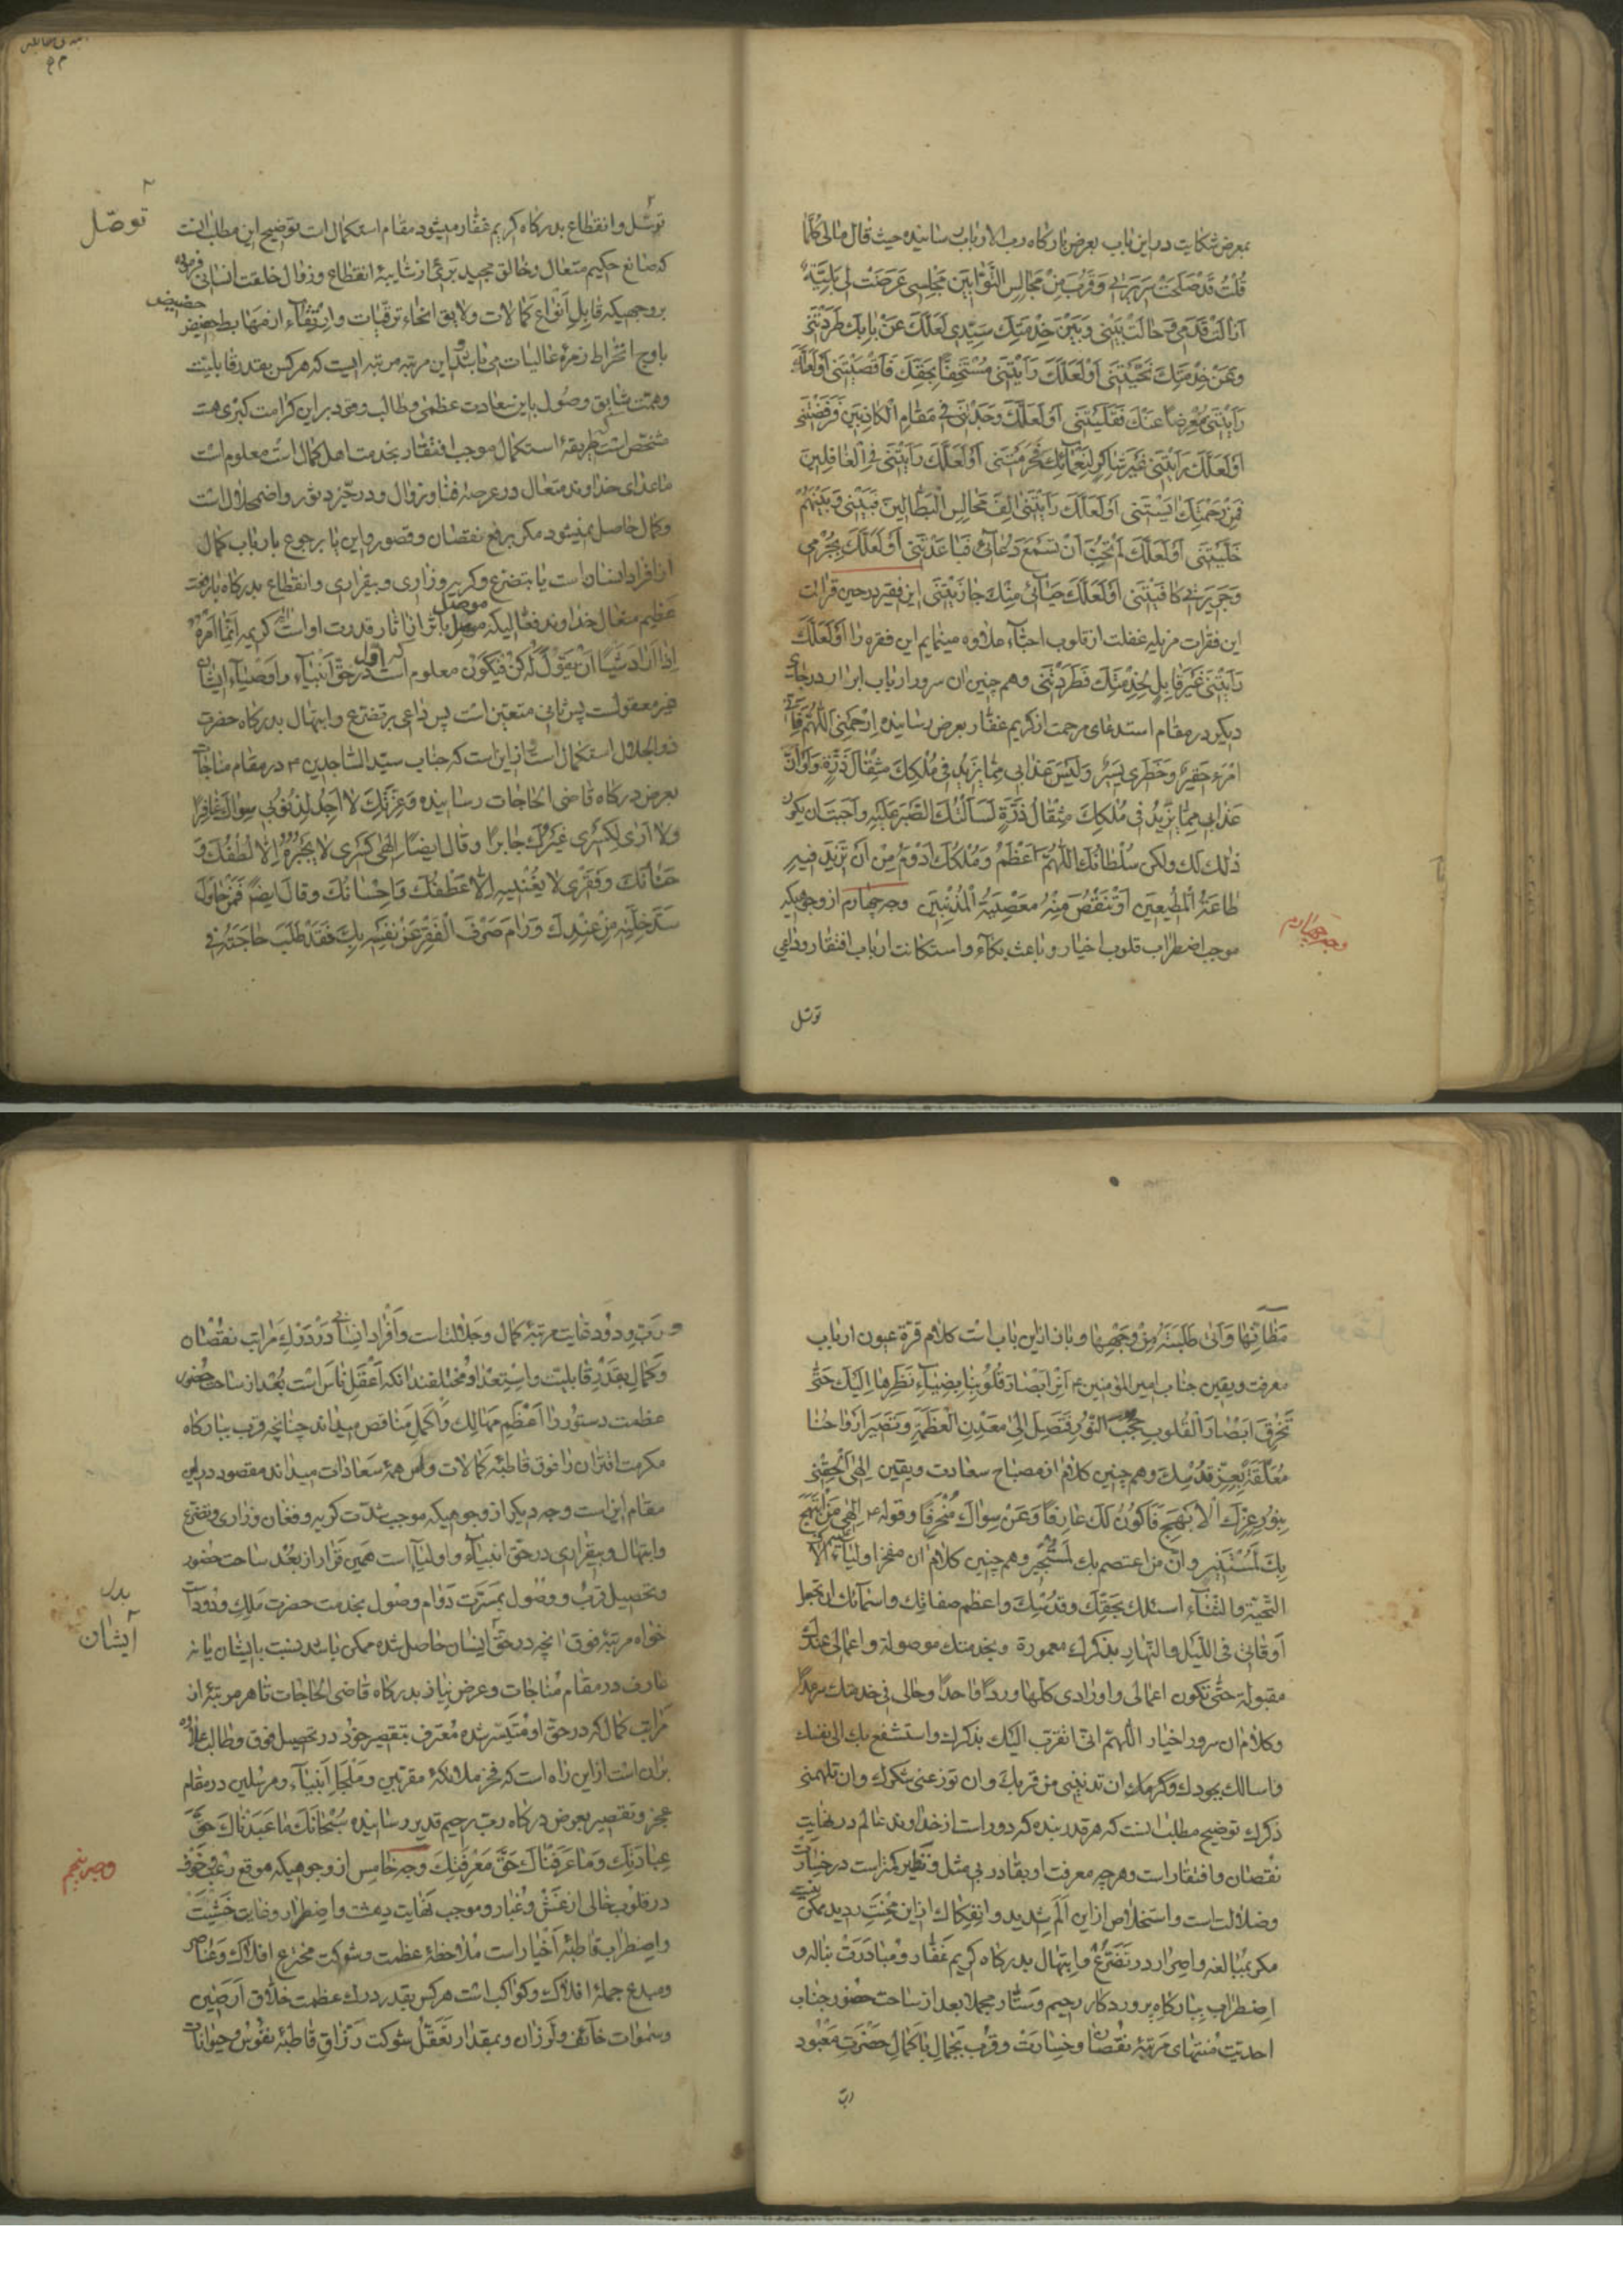 بمعرض شکایت در این باب بعرض بارکاه رب الارباب رسانیده حیث قال مالی کلما
قُلْتُ قَدْ صَلَحَتْ سَرِیرَتی وَقَرُبَ مِنْ مَجَالِسِ التَّوَّابینَ مَجْلِسی عَرَضَتْ لی بَلِیَّةٌ
اَزَالَتْ قَدَمی وَحَالَتْ بَیْنی وَبَیْنَ خِدْمَتِكَ سَیِّدی لَعَلَّكَ عَنْ بَابِكَ طَرَدْتَنی
وَعَنْ خِدْمَتِكَ نَحَّیْتَنی اَوْ لَعَلَّكَ رَاَیْتَنی مُسْتَخِفًّا بِحَقِّكَ فَاَقْصَیْتَنی اَوْ لَعَلَّكَ
رَاَیْتَنی مُعْرِضًا عَنْكَ فَقَلَیْتَنی اَوْ لَعَلَّكَ وَجَدْتَنی فی مَقَامِ الْکَاذِبینَ فَرَفَضْتَنی
اَوْ لَعَلَّكَ رَاَیْتَنی غَیْرَ شَاکِرٍ لِنَعْمَائِكَ فَحَرَمْتَنی اَوْ لَعَلَّكَ رَاَیْتَنی فی الْغَافِلینَ
فَمِنْ رَحْمَتِكَ اٰیَسْتَنی اَوْ لَعَلَّكَ رَاَیْتَنی اٰلِفَ مَجَالِسِ الْبَطَّالینَ فَبَیْنی وَبَیْنَهُمْ
خَلَّیْتَنی اَوْ لَعَلَّكَ لَمْ تُحِبَّ اَنْ تَسْمَعَ دُعَائی فَبَاعَدْتَنی اَوْ لَعَلَّكَ بِجُرْمی
وَجَریرَتی کَافَیْتَنی اَوْ لَعَلَّكَ بِقِلَّةِ حَیَائی مِنْكَ جَازَیْتَنی این فقیر در حین قرائت
این فقرات مزیله غفلت از قلوب احباء علاوه مینمایم این فقره را اَوْ لَعَلَّكَ
رَاَیْتَنی غَیْرَ قَابِلٍ لِخِدْمَتِكَ فَطَرَدْتَنی وهم چنین ان سرور ارباب ابرار در جای
دیکر در مقام استدعای مرحمت از کریم غفار بعرض رسانیده اِرْحَمْنی اَللّٰهُمَّ فَاِنّی
امْرَءٌ حَقیرٌ وَخَطَری یَسیرٌ وَلَیْسَ عَذَابی مِمَّا یَزیدُ فی مُلْکِكَ مِثْقَالَ ذَرَّةٍ وَلَوْ اَنَّ
عَذَابی مِمَّا یَزیدُ فی مُلْکِكَ مِثْقَالَ ذَرَّةٍ لَسَاَلْتُكَ الصَّبْرَ عَلَیْهِ وَاَحْبَبْتُ ان یکون
ذٰلِكَ لَكَ ولکن سُلْطَانُكَ اللّٰهُمَّ اَعْظَمُ وَمُلْکُكَ اَدْوَمُ مِنْ اَنْ تَزیدَ فیهِ
طَاعَةُ الْمُطیعینَ اَوْ تَنْقُصَ مِنْهُ مَعْصِیَةُ الْمُذْنِبینَ وجه چهارم از وجوهیکه
موجب اضطراب قلوب اخیار و باعث بکاء و استکانت ارباب افتقار وداعی
وجه چهارم
توسل
توسّل وانقطاع بدرکاه کریم غفّار میشود مقام استکمال است توضیح این مطلب انست
توصّل
که صانع حکیم متعال وخالق مجید بَریء از شایبهٔ انقطاع وزوال خلقت انسانی فرموده
بروجهیکه قابل انواع کمالات ولایق انحاء ترقّیات وارتقاء ازمنها بط حضیض
حضیض
باوج انخراط زمرهٔ عالیات می باشد و این مرتبه مرتبه ایست که هر کس بقدر قابلیّت
وهمّت شایق وصُول باین سعادت عظمی وطالب ومتی دبر این کرامت کبری هست
مشخص است که طریقهٔ استکمال موجب افتقار بخدمت اهل کمال است معلوم است
ماعدای خداوند متعال در عرصهٔ فنا وزوال ودر حیّز دثور واضمحلال است
وکمال حاصل نمیشود مکر برفع نقصان وقصور واین یا برجوع بارباب کمال
از افراد انسان است یا بتضرّع وکریه وزاری وبیقراری وانقطاع بدرکاه بارفعت
عظیم متعال خداوند فعّالیکه موصل باثران اثار قدرت او است کریمه اِنَّمَا اَمْرُهُ
موصل
اِذَا اَرَادَ شَیْئًا اَنْ یَقُولَ لَهُ کُنْ فَیَکُونُ معلوم است که اول در حق انبیاء واوصیاء ایشان
غیر معقولست پس ثانی متعین است پس داعی بر تضرّع وابتهال بدرکاه حضرت
ذوالجلال استکمال است و از این است که جناب سیّد السّاجدین ع در مقام مناجات
بعرض درکاه قاضی الحاجات رسانیده وَعِزَّتِكَ لَا اَجِدُ لِذُنُوبی سِوَاكَ غَافِرًا
ولا اَرٰی لِکَسْری غَیْرَكَ جَابِرًا وقال ایضًا اِلٰهی کَسْری لَا یَجْبُرُهُ اِلَّا لُطْفُكَ وَ
حَنَانُكَ وَفَقْری لَا یُغْنیهِ اِلَّا عَطْفُكَ وَاِحْسَانُكَ وقال ایضً فَمَنْ حَاوَلَ
سَدَّ خَلَّتِهِ مِنْ عِنْدِكَ وَرَامَ صَرْفَ الْفَقْرِ عَنْ نَفْسِهِ بِكَ فَقَدْ طَلَبَ حَاجَتَهُ فی
مَظَانِّهَا وَاَتٰی طَلِبَتَهُ مِنْ وَجْهِهَا وباز از این باب است کلام قرّة عیون ارباب
معرفت ویقین جناب امیر المؤمنین ع اَنِرْ اَبْصَارَ قُلُوبِنَا بِضِیَاءِ نَظَرِهَا اِلَیْكَ حَتّٰی
تَخْرِقَ اَبْصَارُ الْقُلُوبِ حُجُبَ النُّورِ فَتَصِلَ اِلٰی مَعْدِنِ الْعَظَمَةِ وَتَصیرَ اَرْوَاحُنَا
مُعَلَّقَةً بِعِزِّ قُدْسِكَ وهم چنین کلام از مصباح سعادت ویقین اِلٰهی اَلْحِقْنی
بِنُورِ عِزِّكَ الْاَبْهَجِ فَاَکُونَ لَكَ عَارِفًا وَعَنْ سِوَاكَ مُنْحَرِفًا وقوله ع اِلٰهی مَنِ ابْتَهَجَ
بِكَ لَمُسْتَنیرٌ وانّ من اعتصم بك لَمُسْتَجیرٌ وهم چنین کلام ان مفخر اولیاء
التحیّة والثّناء اسئلك بحقّك وقدسك واعظم صفاتك واسمائك ان تجعل
اَوْقاتی فی اللّیل والنّهار بذکرك معمورة وبخدمتك موصولة واعمالی عندك
مقبولة حتّی تکون اعمالی واورادی کلّها وردًا واحدًا وحالی فی خدمتك سرمدًا
وکلام ان سرور اخیار اللّهمّ انّی اتقرّب الیك بذکرك واستشفع بك الی نفسك
واسالك بجودك وکرمك ان تدنینی من قربك وان توزعنی شکرك وان تلهمنی
ذکرك توضیح مطلب انست که هر قدر بنده که دور است از خداوند عالم در نهایت
نقصان وافتقار است وهر چه معرفت او بقادر بی مثل ونظیر کمتر است در خسارت
وضلالت است واستخلاص از این اَلَم شدید وانفکاك از این مِحنت مدید ممکن نیست
مکر بمُبالغه واصرار در تَضرّع وابتهال بدرکاه کریم غَفّار ومُبادَرَت بناله و
اضطراب ببارکاه پروردکار رحیم وسَتّار مجملا بعد از ساحت حضور جناب
احدیّت مُنتهای مَرتبهٔ نقصان وخسارت وقُرب بجمال باکمال حضرت مَعْبُود
رب
و رَبّ ودود غایت مرتبهٔ کمال وجلالت است واَفراد انسانی دَردَرْكِ مَراتب نقصان
وکمال بقدر قابلیّت واستعداد مُختلفند انکه اَعْقَلِ ناس است بُعد از ساحت حضور
عظمت دستور را اعظم مهالك واکمل مناقص میداند چنانچه قرب ببارکاه
مکرمت اقتران را فوق قاطبهٔ کمالات و همهٔ سَعادات میداند مقصود در این
مقام این است وجه دیکر از وجوهیکه موجب شدّت کریه وفغان وزاری وتضرّع
وابتهال وبیقراری در حق انبیاء واولیا است همین قرار از بُعد ساحت حضور
وتحصیل قرب ووصُول بمَسَرّت دَوام وصُول بخدمت حضرت مَلِك ودُود است
خواه مرتبهٔ فوق انچه در حق ایشان حاصل شده ممکن باشد نسبت بایشان یا نه
ایشان
عارف در مقام مُناجات وعرض نیاز بدرکاه قاضی الحاجات تا هر مرتبه از
مَراتب کمال که در حق او مُتَیَسّر شده مُعترف بتقصیر خود در تحصیل فوق وطالب علاوه
بران است از این راه است که فخر ملائکهٔ مقربین ومَلجا اَنبیاء ومرسلین در مقام
عجز وتقصیر بعرض درکاه رب رحیم قدیر رسانیده سُبْحَانَكَ مَا عَبَدْنَاكَ حَقَّ
عِبَادَتِكَ وَمَا عَرَفْنَاكَ حَقَّ مَعْرِفَتِكَ وجه خامس از وجوهیکه موقع رُعب وخوف
وجه پنجم
در قلوب خالی از غَشّ وغُبار وموجب نهایت دهشت واضطرار وغایت خَشْیَت
واضطراب قاطبهٔ اَخیار است مُلاحظهٔ عظمت وشوکت مخترع افلاك وعناصر
ومبدع جملهٔ افلاك وکواکب است هر کس بقدر درك عظمت خلّاق اَرَضین
وسَمٰوات خآئف ولرزان وبمقدار تَعَقّل شوکت رَزّاق قاطبهٔ نفُوس وحیوانات